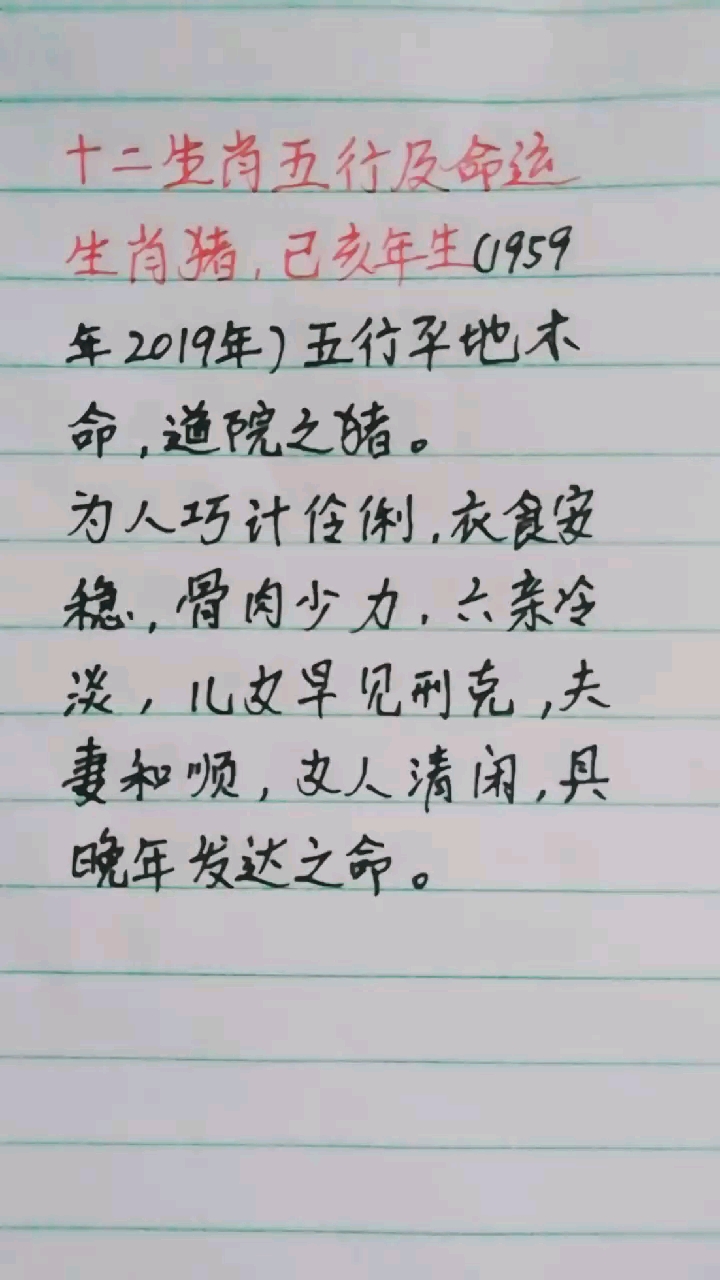 十二生肖五行及命运
生肖猪，己亥年生(1959
年2019年)五行平地木
命，道院之猪。
为人巧计伶俐，衣食安
稳，骨肉少力，六亲冷
淡，儿女早见刑克，夫
妻和顺，女人清闲，具
晚年发达之命。